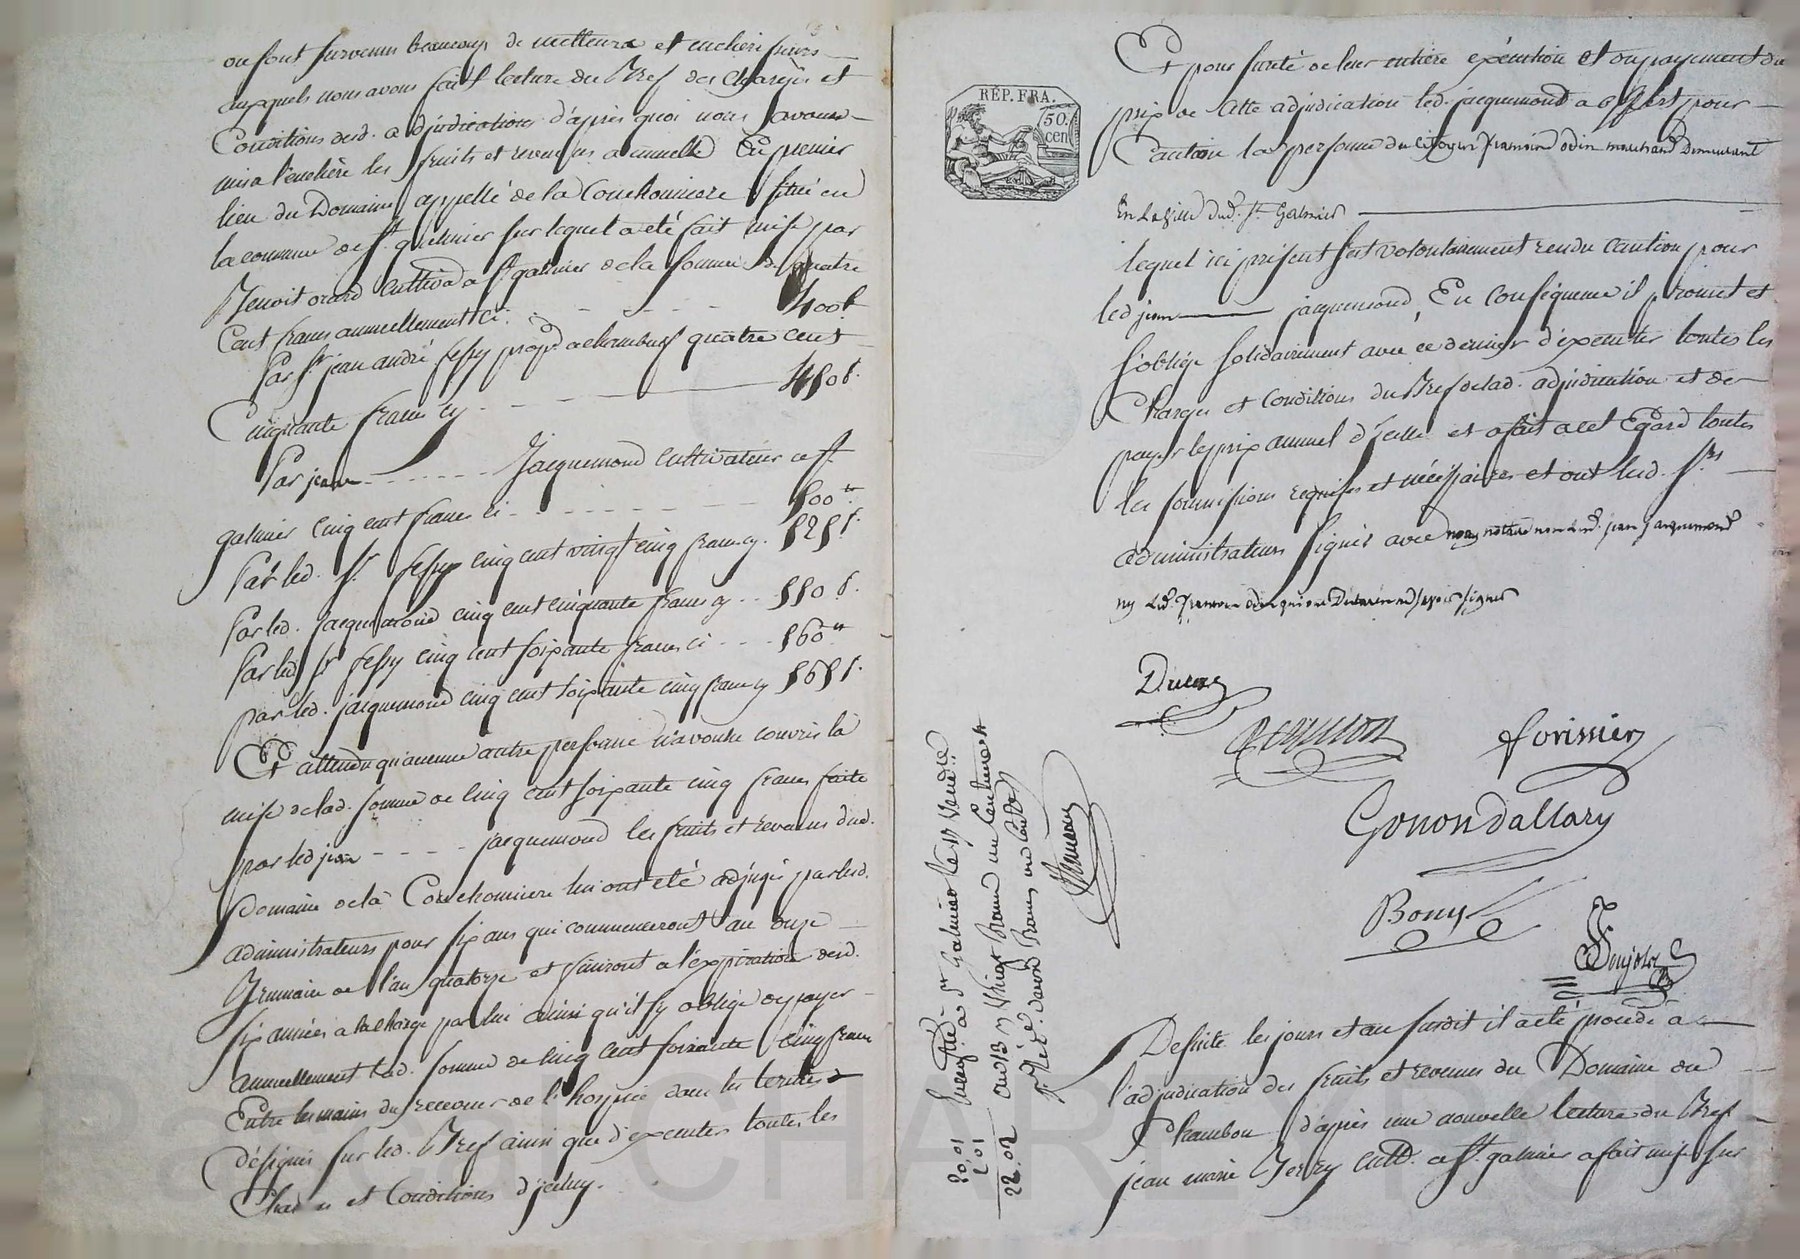 ou sont survenus beaucoup de metteurs et enchérisseurs
auxquels nous avons fait lecture du Bref des charges et
Conditions desd. adjudications d'après quoi nous avons
mis a l'enchère les fruits et revenus annuelle En premier
lieu du Domaine appellé de la Conchonniere situé en
la commune de St. galmier sur lequel a été fait mise par
Benoit cultiv a St galmier de la somme de quatre
Cent francs annuellement ci. 400f.
Par Sr. jean andré fessy prop. a chambeuf quatre cent
Cinquante francs cy 450f.
Par jean Jacquemond cultivateur a St.
galmier cinq cent francs ci 500
Par led. Sr. fessy cinq cent vingt cinq francs cy. 525f.
Par led. jacquemond cinq cent cinquante francs cy 550f.
Par led Sr fessy cinq cent soixante francs ci 560
par led. jacquemond cinq cent soixante cinq francs cy 565f.
Et attendu qu'aucune autre personne n'a voulu couvrir la
mise de lad. somme de cinq cent soixante cinq francs faite
par led jean jacquemond les fruits et revenus dud.
Domaine de la Conchonniere lui ont été adjugés par lesd.
administrateurs pour six ans qui commenceront au onze
Brumaire de l'an quatorze et finiront a l'expiration desd.
six années a la charge par lui ainsi qu'il s'y oblige de payer
annuellement lad. somme de cinq cent soixante cinq francs
Entre les mains du receveur de l'hospice dans les termes
désignés sur led. Bref ainsi que d'executer toutes les
Charges et Conditions d'jcelluy.
RÉP. FRA.
50.
cen
Et pour sureté de leur entiere exécution et du payement du
prix de cette adjudication led. jacquemond a offert pour
Caution la personne du citoyen françois odin marchand Demeurant
En La ville dud. St Galmier
lequel ici présent s'est volontairement rendu caution pour
led jean jacquemond, En conséquence il promet et
s'oblige solidairement avec ce dernier d'executer toutes les
Charges et conditions du Bref de lad. adjudication et de
payer le prix annuel d'jcelle et a fait a cet Egard toutes
les soumissions requises et nécessaires et ont lesd. Srs
administrateurs signés avec nous notaire non led. jean jacquemond
ny led. françois odin qui ont Déclaré ne savoir signer
Ducros
forissier
Gonon Dallary
Bony
Enregistré à St Galmier le 17 Vend.re
an 13
20,01
2 01
22.02
De suite les jours et an susdit il a été procédé a
l'adjudication des fruits et revenus du Domaine du
Chambon d'après une nouvelle lecture du Bref
jean marie cult. a St. galmier a fait mise sur
CHARLYRON